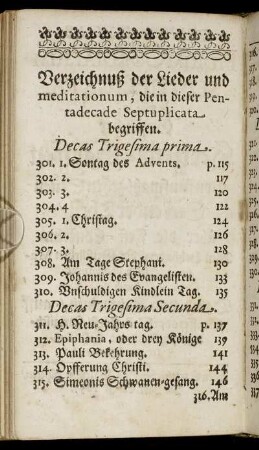 Verzeichnuß der Lieder und
meditationum, die in dieser Pen-
tadecade Septuplicata
begriffen.
Decas Trigesima prima.
301. 1. Sontag des Advents. p. 115
302. 2. 117
303. 3. 120
304. 4 122
305. 1. Christag. 124
306. 2. 126
307. 3. 128
308. Am Tage Stephani. 130
309. Johannis des Evangelisten. 133
310. Vnschuldigen Kindlein Tag. 135
Decas Trigesima Secunda.
311. H. Neu-Jahrs tag. p. 137
312. Epiphania, oder drey Könige 139
313. Pauli Bekehrung. 141
314. Opfferung Christi. 144
315. Simeonis Schwanen-gesang. 146
316. Am